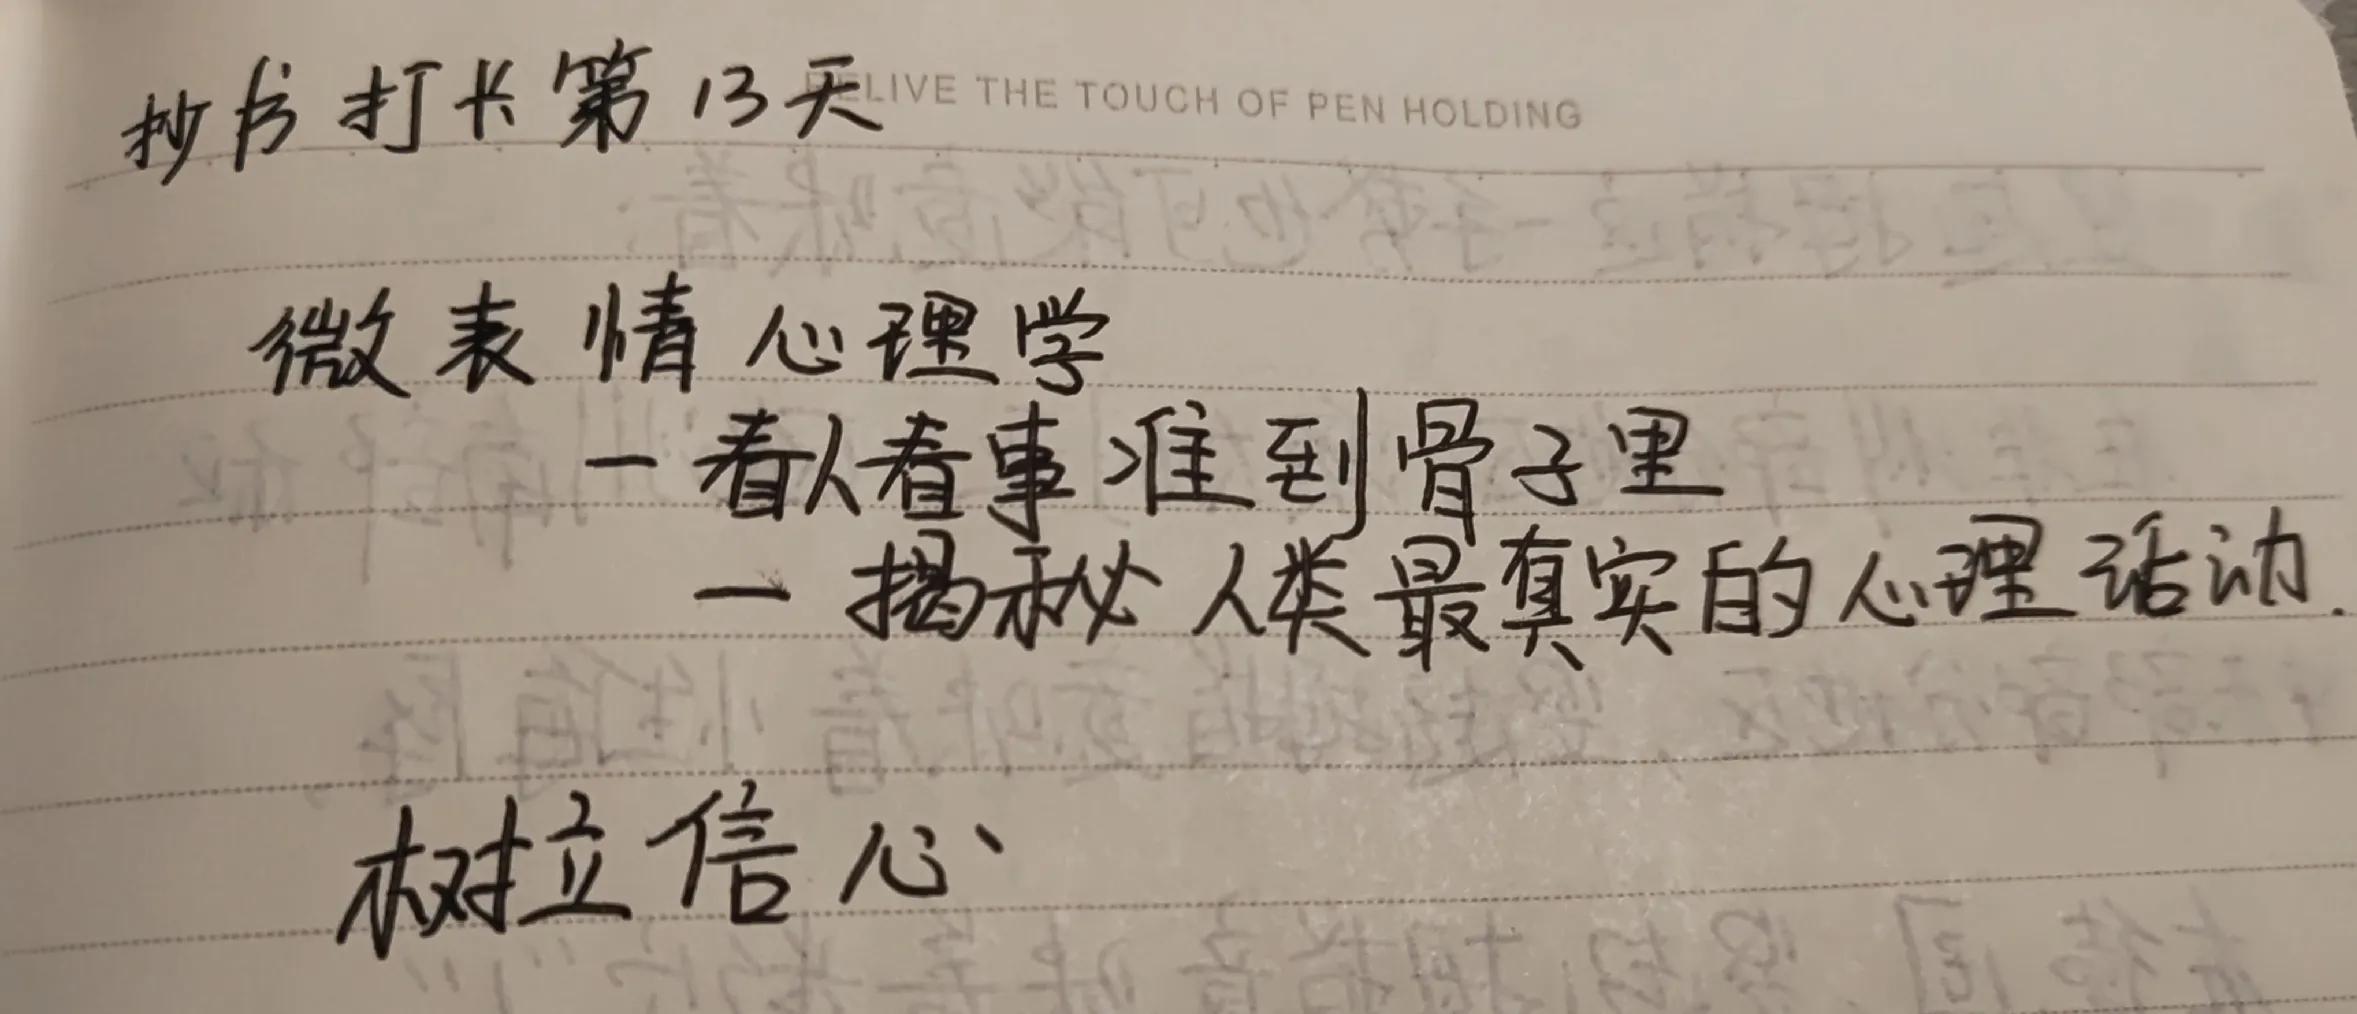 抄书打卡第13天
RELIVE THE TOUCH OF PEN HOLDING
微表情心理学
一看人看事准到骨子里
一揭秘人类最真实的心理活动.
树立信心